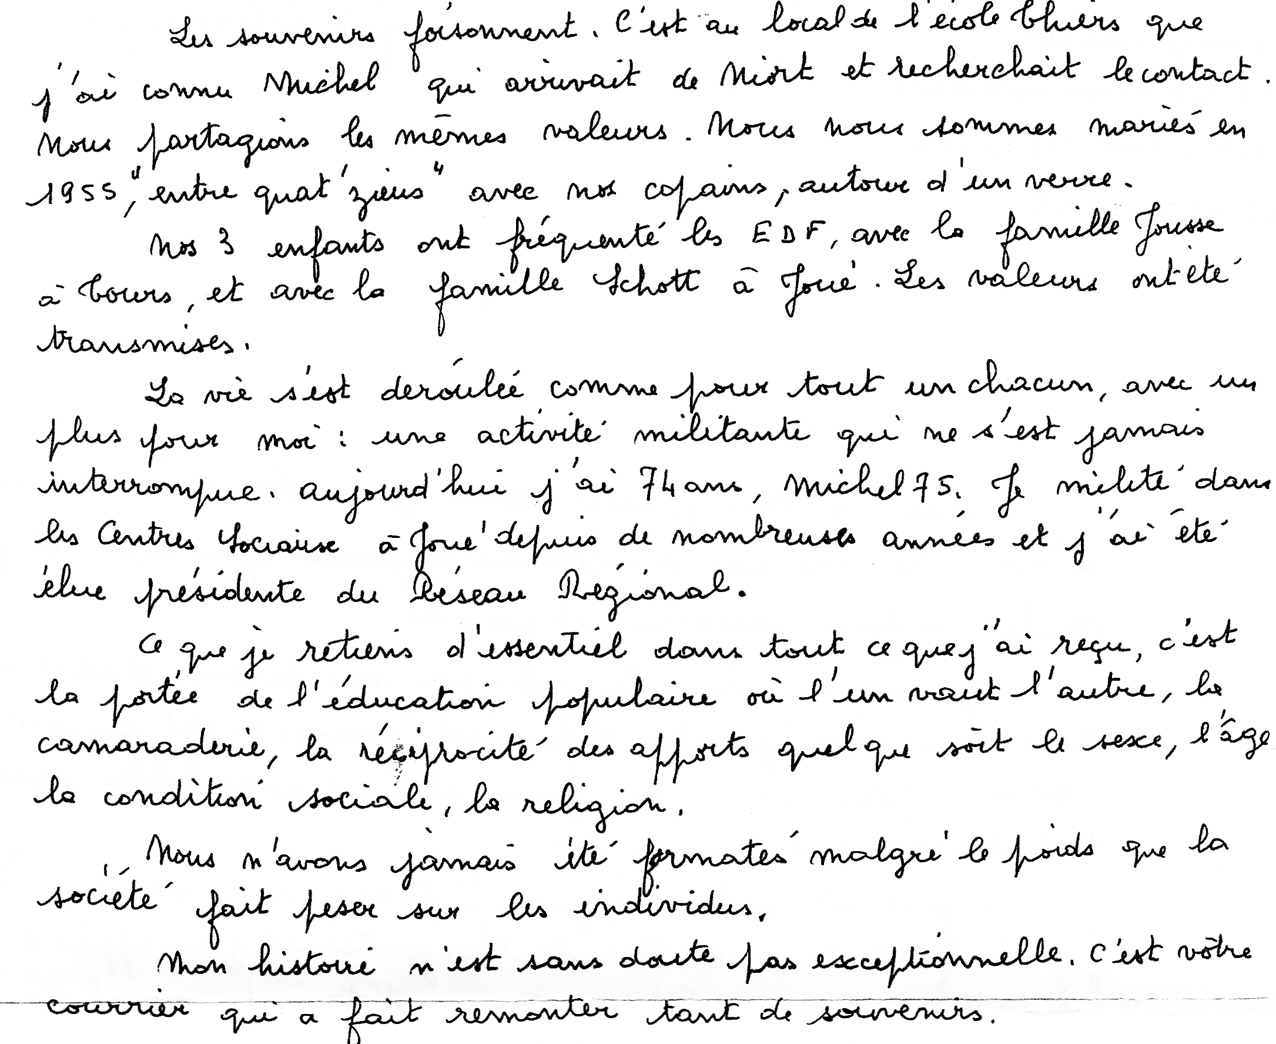 Les souvenirs foisonnent. C'est au local de l'école Thiers que
j'ai connu Michel qui arrivait de Niort et recherchait le contact.
Nous partagions les mêmes valeurs. Nous nous sommes mariés en
1955, "entre quat'zieus" avec nos copains, autour d'un verre.
Nos 3 enfants ont fréquenté les EDF, avec la famille Jousse
à Tours, et avec la famille Schott à Joué. Les valeurs ont été
transmises.
La vie s'est déroulée comme pour tout un chacun, avec un
plus pour moi : une activité militante qui ne s'est jamais
interrompue. Aujourd'hui j'ai 74 ans, Michel 75. Je milite dans
les Centres Sociaux à Joué depuis de nombreuses années et j'ai été
élue présidente du Réseau Régional.
Ce que je retiens d'essentiel dans tout ce que j'ai reçu, c'est
la portée de l'éducation populaire où l'un vaut l'autre, la
camaraderie, la réciprocité des apports quel que soit le sexe, l'âge
la condition sociale, la religion.
Nous n'avons jamais été formatés malgré le poids que la
société fait peser sur les individus.
Mon histoire n'est sans doute pas exceptionnelle. C'est votre
courrier qui a fait remonter tant de souvenirs.